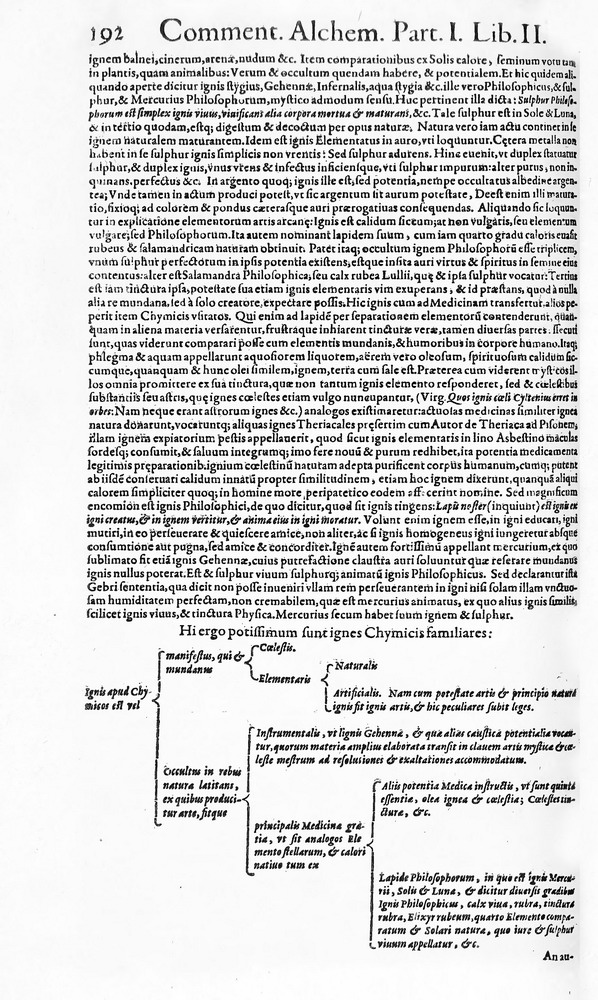 192 Comment. Alchem. Part. I. Lib. II.
ignem balnei, cinerum, arenæ, nudum &c. Item comparationibus ex Solis calore, seminum
in plantis, quam animalibus: Verum & occultum quendam habere, & potentialem. Et hic quidem ali-
quando aperte dicitur ignis stygius, Gehennæ, Infernalis, aqua stygia &c. ille vero Philosophicus, & sul-
phur, & Mercurius Philosophorum, mystico admodum sensu. Huc pertinent illa dicta: Sulphur Philoso-
phorum est simplex ignis viuus, viuificans alia corpora mortua & maturans, &c. Tale sulphur est in Sole & Luna,
& in tertio quodam, estq; digestum & decoctum per opus naturæ. Natura vero iam actu continet in se
ignem naturalem maturantem. Idem est ignis Elementatus in auro, vti loquuntur. Cętera metalla non
habent in se sulphur ignis simplicis non vrentis: Sed sulphur adurens. Hinc euenit, vt duplex statuatur
sulphur, & duplex ignis, vnus vrens & infectus inficiensque, vti sulphur impurum: alter purus, non in-
quinans, perfectus &c. In argento quoq; ignis ille est, sed potentia, nempe occultatus albedine argen-
tea; Vnde tamen in actum produci potest, vt sic argentum fit aurum potestate, Deest enim illi matura-
tio, fixioq; ad colorem & pondus cæterasque auri prærogatiuas consequendas. Aliquando sic loquun-
tur in explicatione elementorum artis arcanę: Ignis est calidum siccum; at non vulgaris, seu elementum
vulgare; sed Philosophorum. Ita autem nominant lapidem suum, cum iam quarto gradu caloris euasit
rubeus & salamandricam naturam obtinuit. Patet itaq; occultum ignem Philosophorū esse triplicem,
vnum sulphur perfectorum in ipsis potentia existens, estque insita auri virtus & spiritus in semine eius
contentus: alter est Salamandra Philosophica, seu calx rubea Lullii, quę & ipsa sulphur vocatur: Tertius
est iam tinctura ipsa, potestate sua etiam ignis elementaris vim exuperans, & id præstans, quod à nulla
alia re mundana, sed à solo creatore, expectare possis. Hic ignis cum ad Medicinam transfertur, alios pe-
perit item Chymicis vsitatos. Qui enim ad lapidē per separationem elementorū contenderunt, quan-
quam in aliena materia versarentur, frustraque inhiarent tincturæ veræ, tamen diuersas partes
sunt, quas viderunt comparari posse cum elementis mundanis, & humoribus in corpore humano. Itaq;
phlegma & aquam appellarunt aquosiorem liquorem, aërem vero oleosum, spirituosum calidum sic-
cumque, quanquam & hunc olei similem, ignem, terra cum sale est. Præterea cum viderent
los omnia promittere ex sua tinctura, quæ non tantum ignis elemento responderet, sed & cœlestibus
substantiis seu astris, quę ignes cœlestes etiam vulgo nuncupantur, (Virg. Quos ignis cœli Cyllenius erret in
orbes: Nam neque erant astrorum ignes &c.) analogos existimaretur: actuosas medicinas similiter ignea
natura donarunt, vocaruntq; aliquas ignes Theriacales pręsertim cum Autor de Theriaca ad Pisonem,
illam ignem expiatorium pestis appellauerit, quod sicut ignis elementaris in lino Asbestino maculas
sordesq; consumit, & saluum integrumq; imo fere nouū & purum redhibet, ita potentia medicamenta
legitimis pręparationib. ignium cœlestinū naturam adepta purificent corpus humanum, cumq; putent
ab iisdē conseruari calidum innatū propter similitudinem, etiam hoc ignem dixerunt, quanquā aliqui
calorem simpliciter quoq; in homine more peripatetico eodem nomine. Sed magnificum
encomion est ignis Philosophici, de quo dicitur, quod sit ignis tingens: Lapis noster (inquiunt) est ignis ex
igni creatus, & in ignem vertitur, & anima eius in igni moratur. Volunt enim ignem esse, in igni educari, igni
nutriri, in eo perseuerare & quiescere amice, non aliter, ac si ignis homogeneus igni iungeretur absque
consumtione aut pugna, sed amice & concorditer. Ignē autem fortissimū appellant mercurium, ex quo
sublimato fit etiā ignis Gehennæ, cuius putrefactione claustra auri soluuntur quæ reserare mundanus
ignis nullus poterat. Est & sulphur viuum sulphurq; animatū ignis Philosophicus. Sed declarantur ista
Gebri sententia, qua dicit non posse inueniri vllam rem perseuerantem in igni nisi solam illam vnctuo-
sam humiditatem perfectam, non cremabilem, quæ est mercurius animatus, ex quo alius ignis similis,
scilicet ignis viuus, & tinctura Physica. Mercurius secum habet suum ignem & sulphur.
Hi ergo potissimum sunt ignes Chymicis familiares:
Ignis apud Chy-
micos est vel
manifestus, qui &
mundanus
Cœlestis.
Elementaris
Naturalis
Artificialis. Nam cum potestate artis & principio naturæ
ignis fit ignis artis, & hic peculiares subit leges.
Occultus in rebus
natura latitans,
ex quibus produci-
tur arte, fitque
Instrumentalis, vt lignis Gehennæ, & quæ alias caustica potentialia vocan-
tur, quorum materia amplius elaborata transit in clauem artis mystica & cœ-
leste mestrum ad resolutiones & exaltationes accommodatum.
principalis Medicinæ gra-
tia, vt sit analogos Ele
mento stellarum, & calori
natiuo tum ex
Aliis potentia Medica instructis, vt sunt quinta
essentia, olea ignea & cœlestia; Cœlestes tin-
cturæ, &c.
Lapide Philosophorum, in quo est ignis Mercu-
rii, Solis & Lunæ, & dicitur diuersis gradibus
Ignis Philosophicus, calx viua, rubra, tinctura
rubra, Elixyr rubeum, quarto Elemento compa-
ratum & Solari natura, quo iure & sulphur
viuum appellatur, &c.
An au-